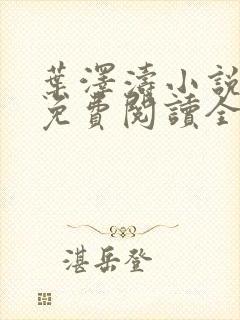 葉澤濤小說
免費閱讀全
湛岳登